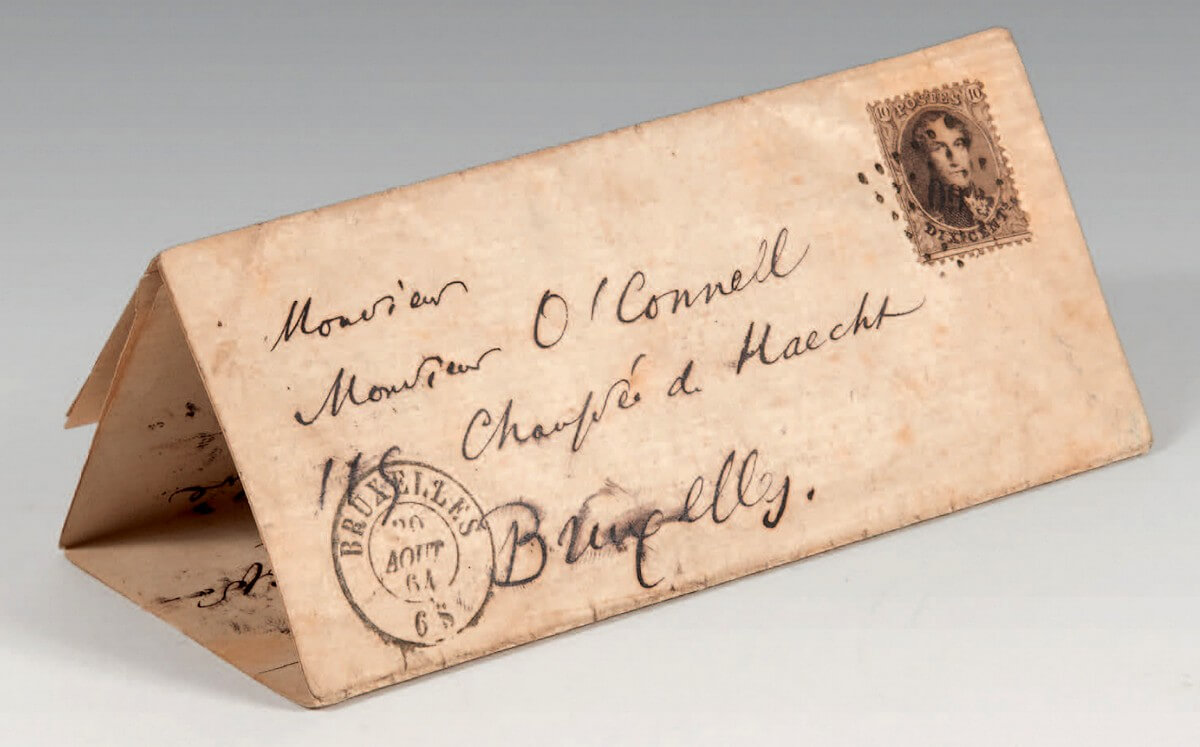 10 POSTES 10
DIX CENT
Monsieur
Monsieur O'Connell
Chaussée de Haecht
115
Bruxelles.
BRUXELLES
20
AOUT
64
6 S